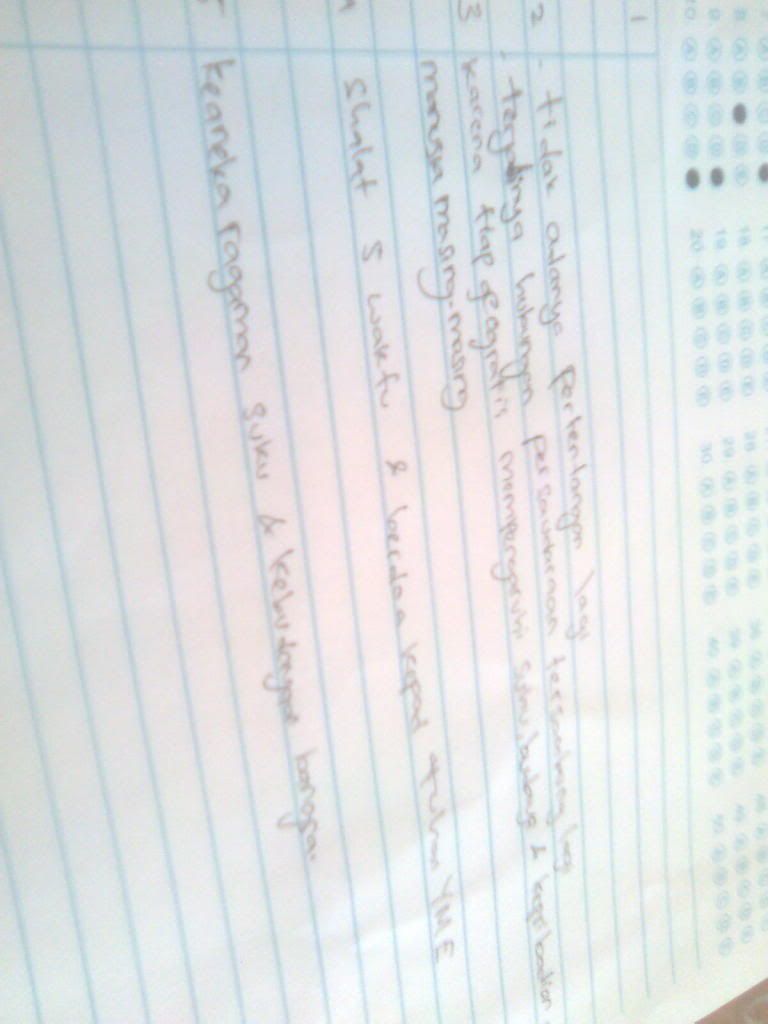 1
2 - tidak adanya pertentangan lagi
- terjadinya hubungan persaudaraan terssambung lagi
3 karena tiap geografis mempengaruhi suku, budaya & kepribadian
manusia masing-masing
4 Shalat 5 waktu & berdoa kepada tuhan YME
5 keaneka ragaman suku & kebudayaan bangsa.
8 A B D E 18 A B C D E 28 A B C D E
9 A B C D 19 A B C D E 29 A B C D E 39 A B C D E 49 A B C D E
10 A B C D 20 A B C D E 30 A B C D E 40 A B C D E 50 A B C D E